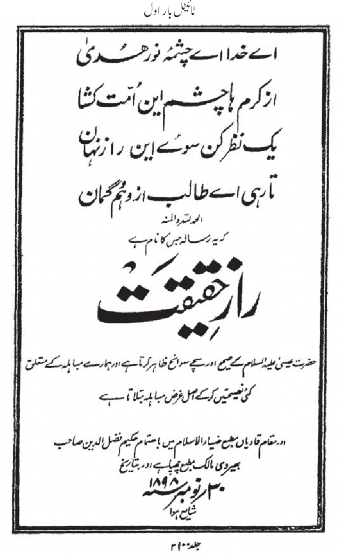 ٹائیٹل بار اول
اے خدا اے چشمۂ نور ھُدیٰ
از کرم ہا چشم این اُمّت کشا
یک نظر کن سوئے این رازِ نہان
تا رہی اے طالب از وہم و گمان
الحمد للہ والمنہ
کہ یہ رسالہ جس کا نام ہے
رازِ حقیقت
حضرت عیسیٰ علیہ السلام کے صحیح اور سچے سوانح ظاہر کرتا ہے اور ہمارے مباہلہ کے متعلق
کئی نصیحتیں کر کے اصل غرض مباہلہ بتلاتا ہے
اور بمقام قادیان مطبع ضیاء الاسلام میں باہتمام حکیم فضل الدین صاحب
بھیروی مالک مطبع چھپا ہے اور بتاریخ
۳۰ نومبر ۱۸۹۸ء
شایع ہوا
جلد ۲۱۰۰